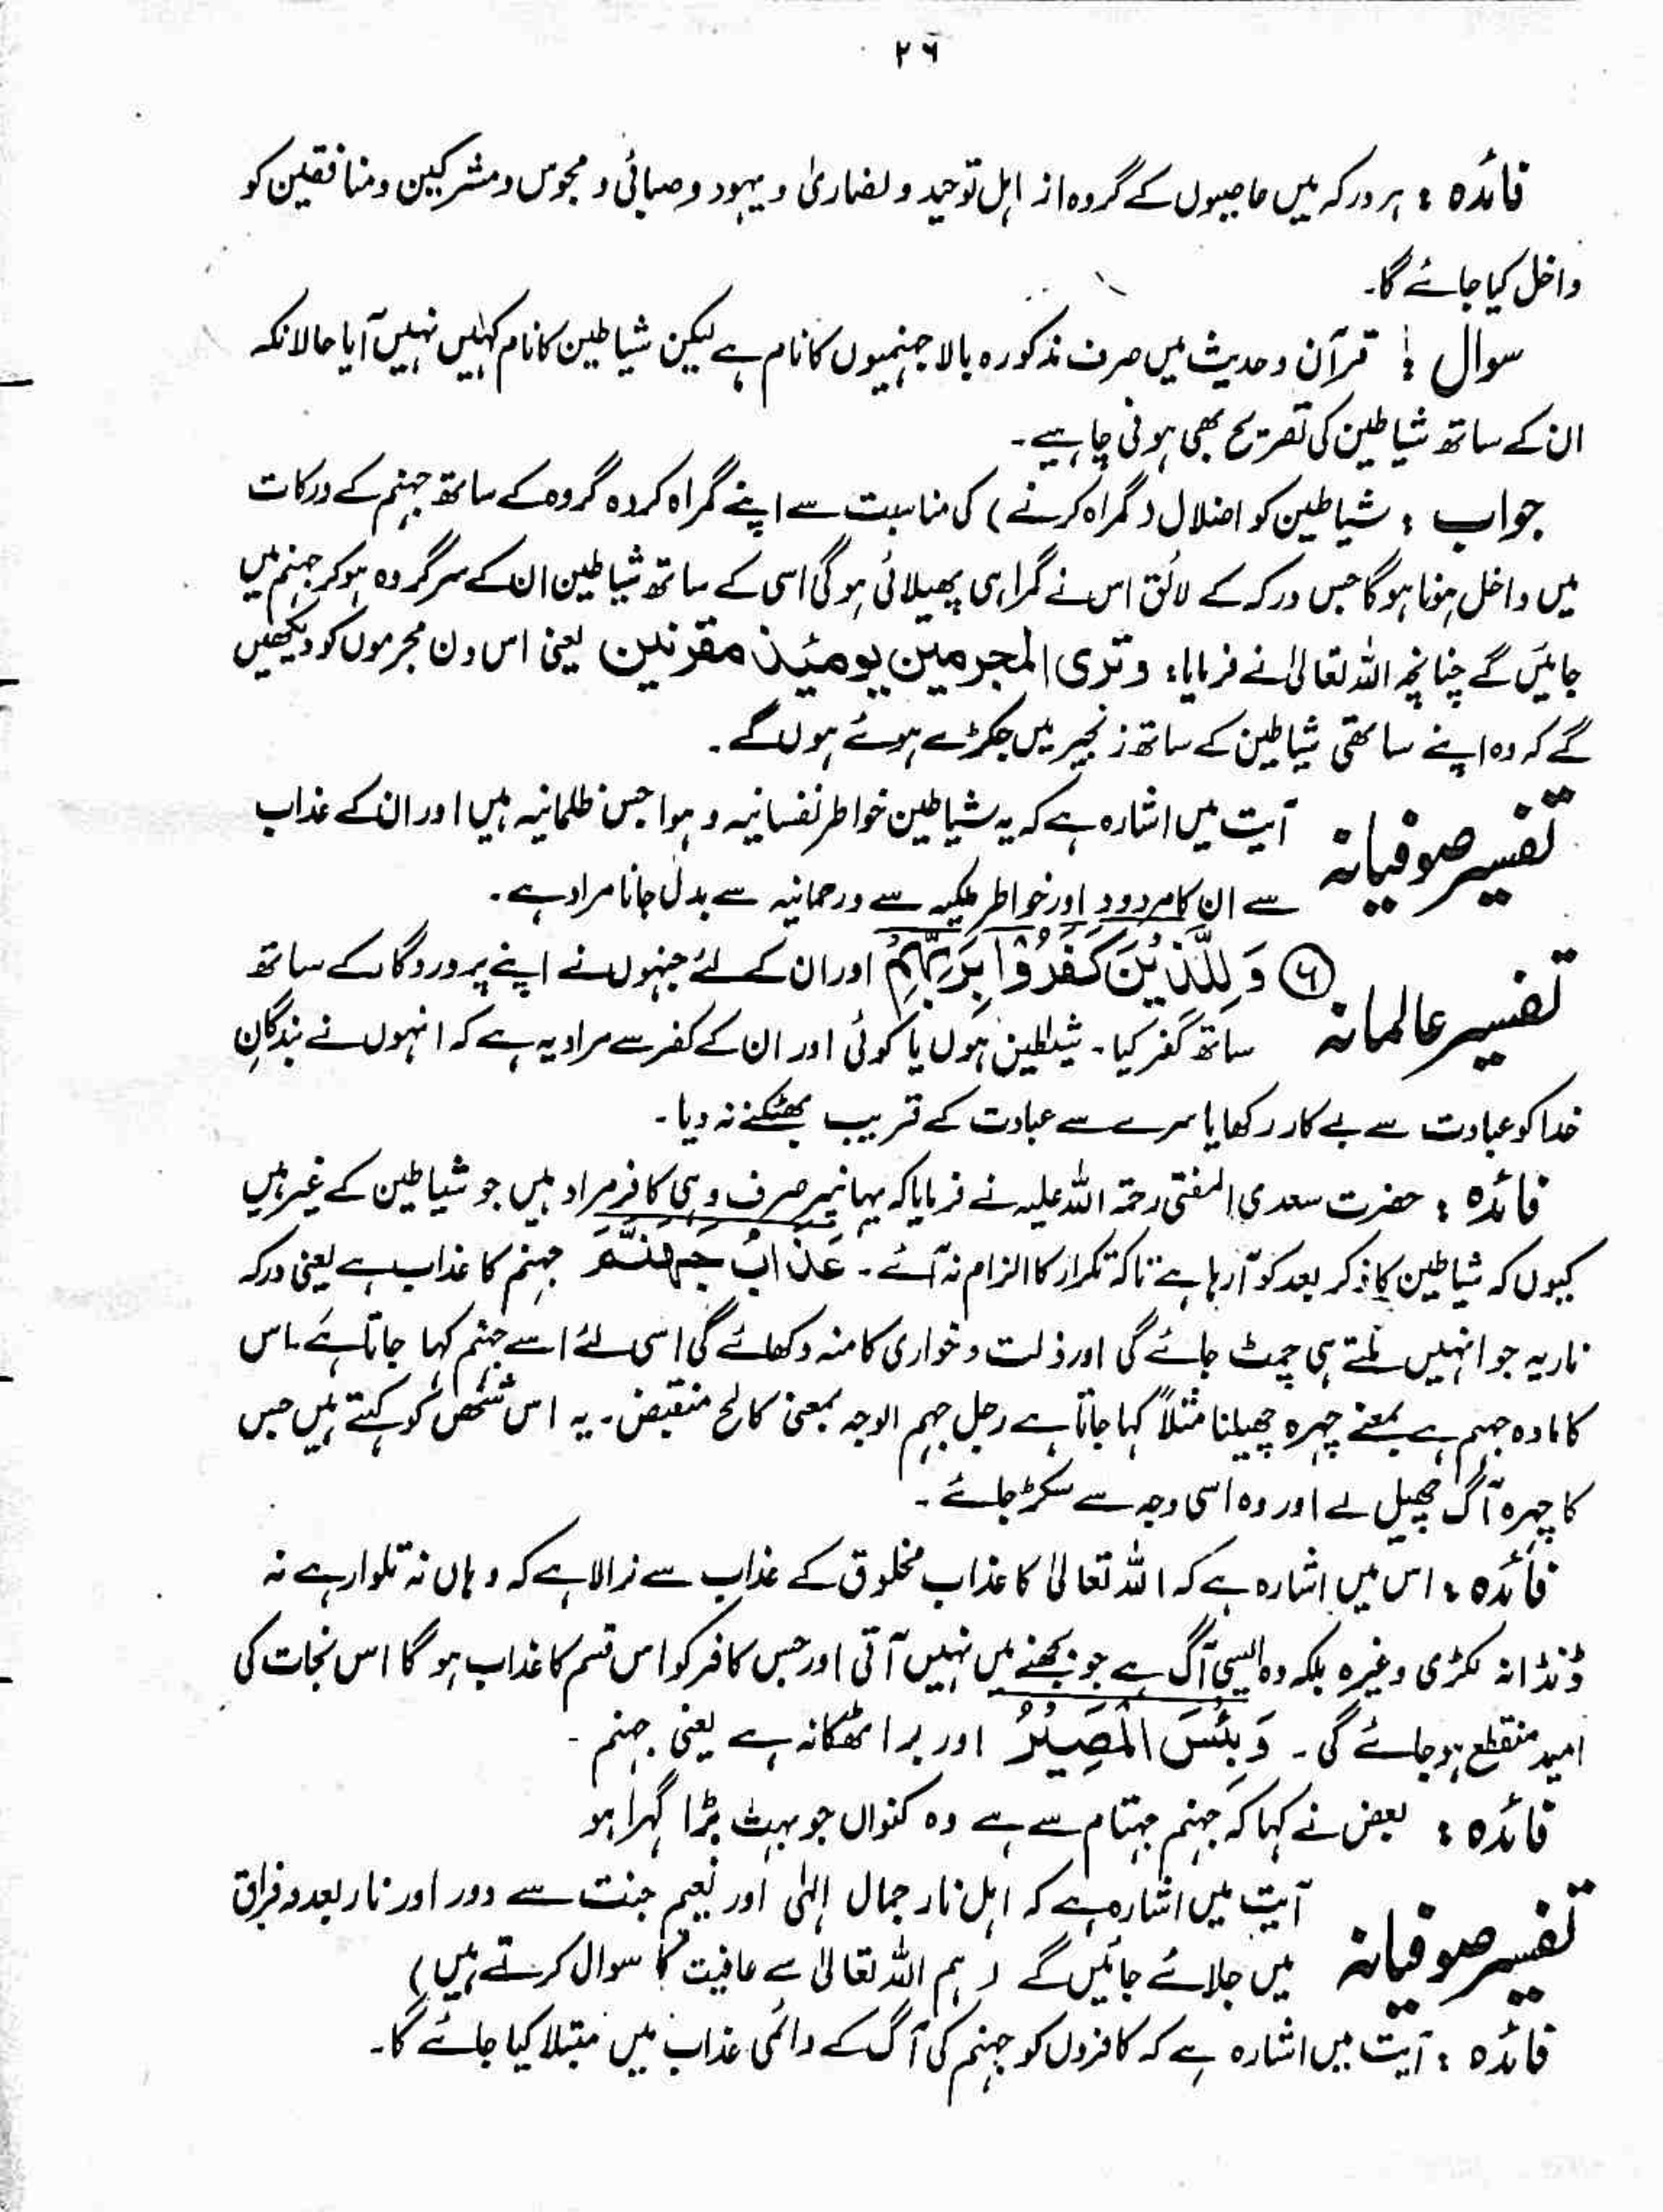 ۲۶
فائدہ : ہر درکہ میں عاصیوں کے گروہ از اہل توحید و نصاریٰ و یہود و صبائی و مجوس و مشرکین و منافقین کو
داخل کیا جائے گا۔
سوال : قرآن و حدیث میں صرف مذکورہ بالا جہنمیوں کا نام ہے لیکن شیاطین کا نام کہیں نہیں آیا حالانکہ
ان کے ساتھ شیاطین کی تصریح بھی ہونی چاہیے۔
جواب : شیاطین کو اضلال ( گمراہ کرنے ) کی مناسبت سے اپنے گمراہ کردہ گروہ کے ساتھ جہنم کے درکات
میں داخل ہونا ہوگا جس درکہ کے لائق اس نے گمراہی پھیلائی ہوگی اسی کے ساتھ شیاطین ان کے سرگروہ ہو کر جہنم میں
جائیں گے چنانچہ اللہ تعالیٰ نے فرمایا: وتری المجرمین یومئذ مقرنین یعنی اس دن مجرموں کو دیکھیں
گے کہ وہ اپنے ساتھی شیاطین کے ساتھ زنجیر میں جکڑے ہوئے ہوں گے ۔
تفسیر صوفیانہ آیت میں اشارہ ہے کہ یہ شیاطین خواطر نفسانیہ و ہواجس ظلمانیہ ہیں اور ان کے عذاب
سے ان کا مردود اور خواطر ملکیہ سے و رحمانیہ سے بدل جانا مراد ہے ۔
تفسیر عالمانہ ⑥ وَ لِلَّذِیْنَ کَفَرُوْا بِرَبِّہِمْ اور ان کے لئے جنہوں نے اپنے پروردگار کے ساتھ
ساتھ کفر کیا ۔ شیٰطین ہوں یا کوئی اور ان کے کفر سے مراد یہ ہے کہ انہوں نے بندگانِ
خدا کو عبادت سے بے کار رکھا یا سرے سے عبادت کے قریب بھٹکنے نہ دیا ۔
فائدہ : حضرت سعدی المفتی رحمۃ اللہ علیہ نے فرمایا کہ یہانپر صرف وہی کافر مراد ہیں جو شیاطین کے غیر ہیں
کیوں کہ شیاطین کا ذکر بعد کو آرہا ہے تاکہ تکرار کا الزام نہ آئے ۔ عَذَابُ جَہَنَّمَ جہنم کا عذاب ہے یعنی درکہ
ناریہ جو انہیں ملتے ہی چمٹ جائے گی اور ذلت و خواری کا منہ دکھائے گی اسی لئے اسے جہنم کہا جاتا ہے ۔ اس
کا مادہ جہم ہے بمعنے چہرہ چھیلنا مثلاً کہا جاتا ہے رجل جہم الوجہ بمعنی کالح منقبض ۔ یہ اس شخص کو کہتے ہیں جس
کا چہرہ آگ چھیل لے اور وہ اسی وجہ سے سکڑ جائے ۔
فائدہ : اس میں اشارہ ہے کہ اللہ تعالیٰ کا عذاب مخلوق کے عذاب سے نرالا ہے کہ وہاں نہ تلوار ہے نہ
ڈنڈا نہ لکڑی وغیرہ بلکہ وہ ایسی آگ ہے جو بجھنے میں نہیں آتی اور جس کافر کو اس قسم کا عذاب ہو گا اس نجات کی
امید منقطع ہوجائے گی ۔ وَ بِئْسَ الْمَصِیْرُ اور برا ٹھکانہ ہے یعنی جہنم ۔
فائدہ : بعض نے کہا کہ جہنم جہنام سے ہے وہ کنواں جو بہت بڑا گہرا ہو
تفسیر صوفیانہ آیت میں اشارہ ہے کہ اہل نار جمال الٰہی اور نعیم جنت سے دور اور نار بعد و فراق
میں جلائے جائیں گے ( ہم اللہ تعالیٰ سے عافیت کا سوال کرتے ہیں )
فائدہ : آیت میں اشارہ ہے کہ کافروں کو جہنم کی آگ کے دائمی عذاب میں مبتلا کیا جائے گا۔